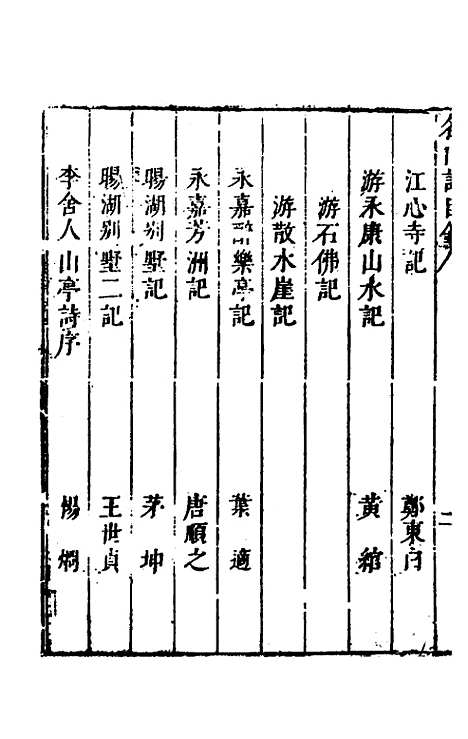 名山記目錄八 二
江心寺記 鄭東白
游永康山水記 黃綰
游石佛記
游散水崖記
永嘉醉樂亭記 葉適
永嘉芳洲記 唐順之
暘湖別墅記 茅坤
暘湖別墅二記 王世貞
李舍人山亭詩序 楊烱